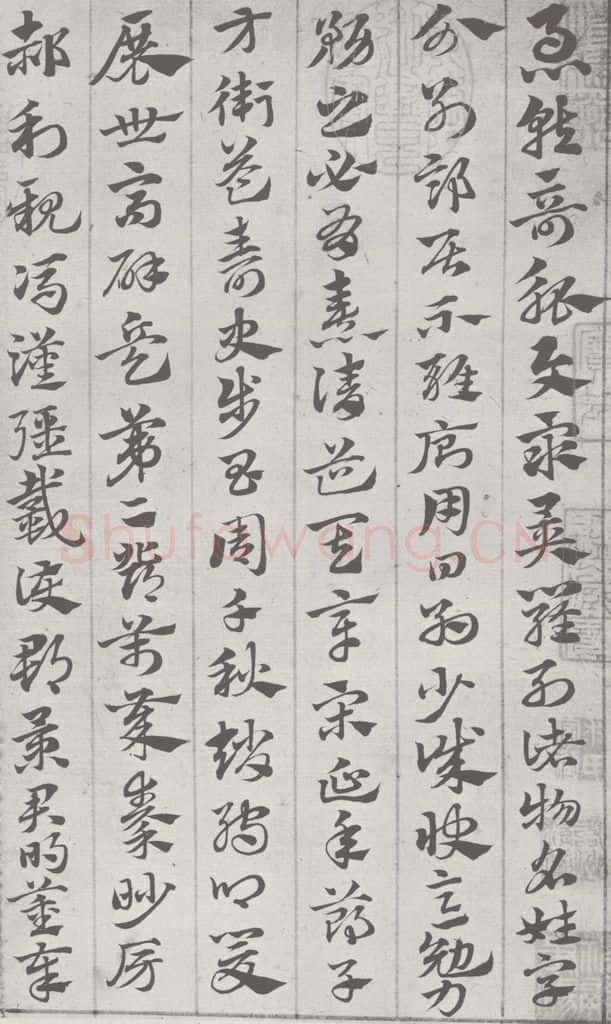 急就奇觚與衆異羅列諸物名姓字
分別部居不雜廁用日約少誠快意勉力
務之必有憙請道其章宋延年鄭子
方衛益壽史步昌周千秋趙孺卿爰
展世高辟兵第二鄧萬歲秦眇房
郝利親馮漢彊戴護郡景君明董奉
Shufawang.CN